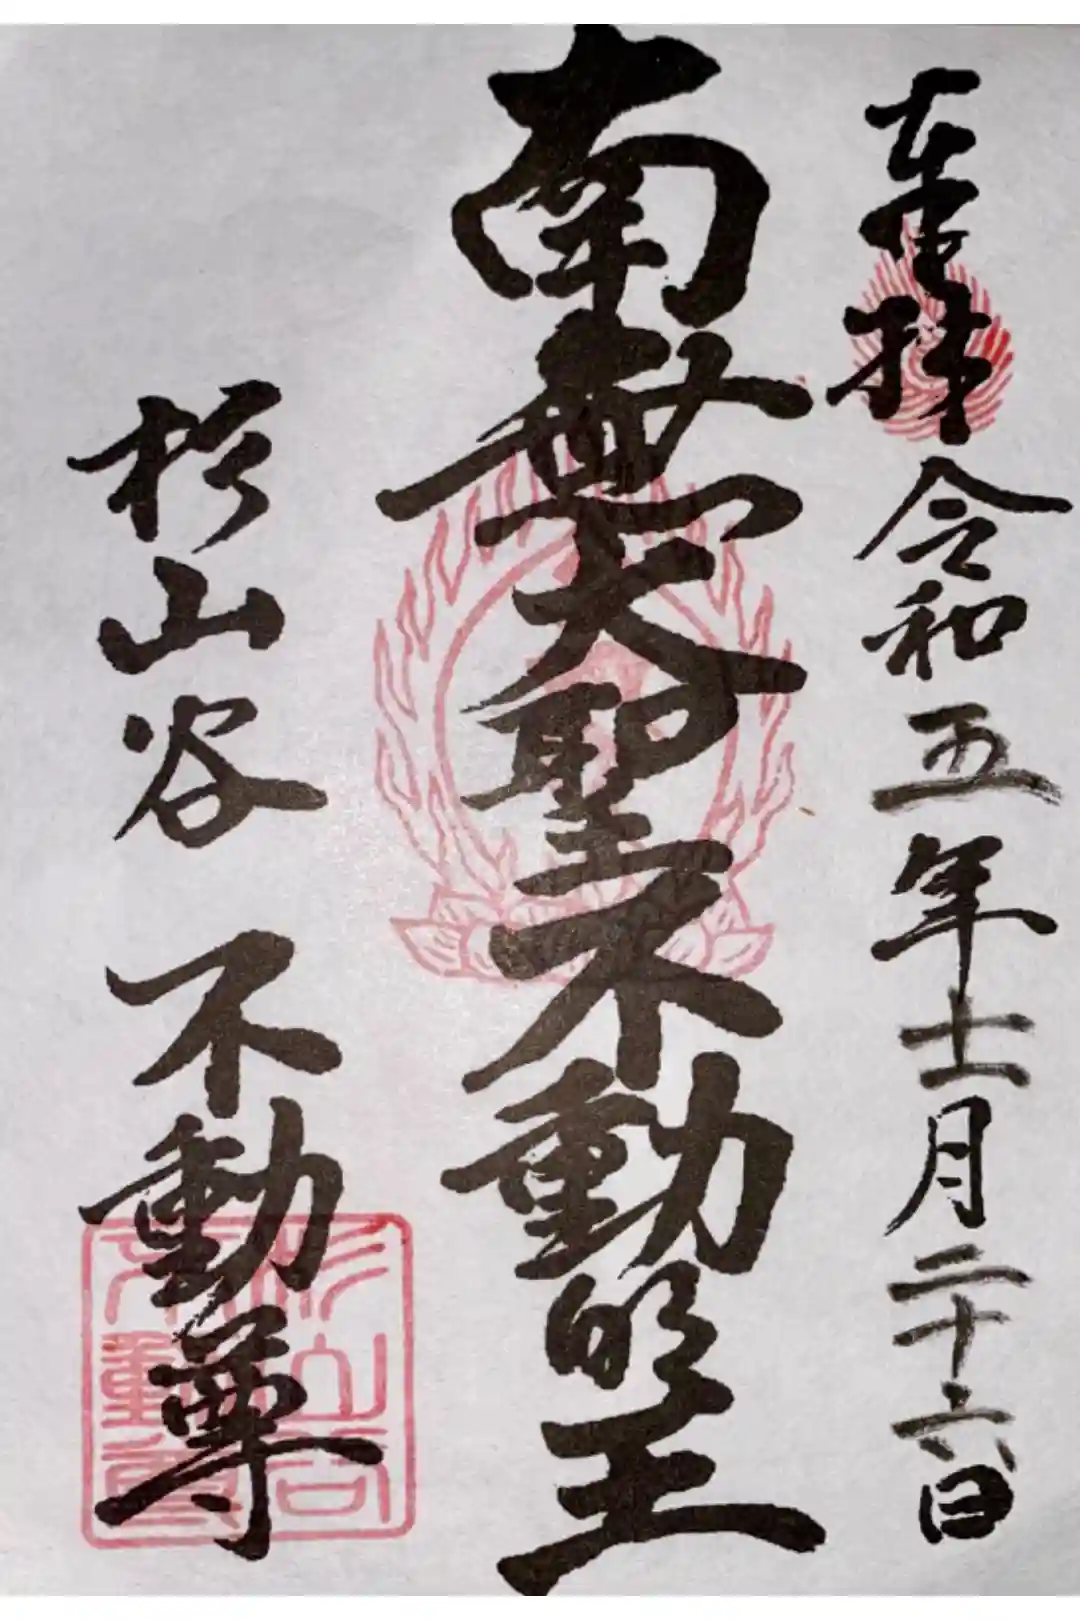 奉拝 令和五年十一月二十六日
南無大聖不動明王
杉山谷 不動尊
杉山谷
不動尊